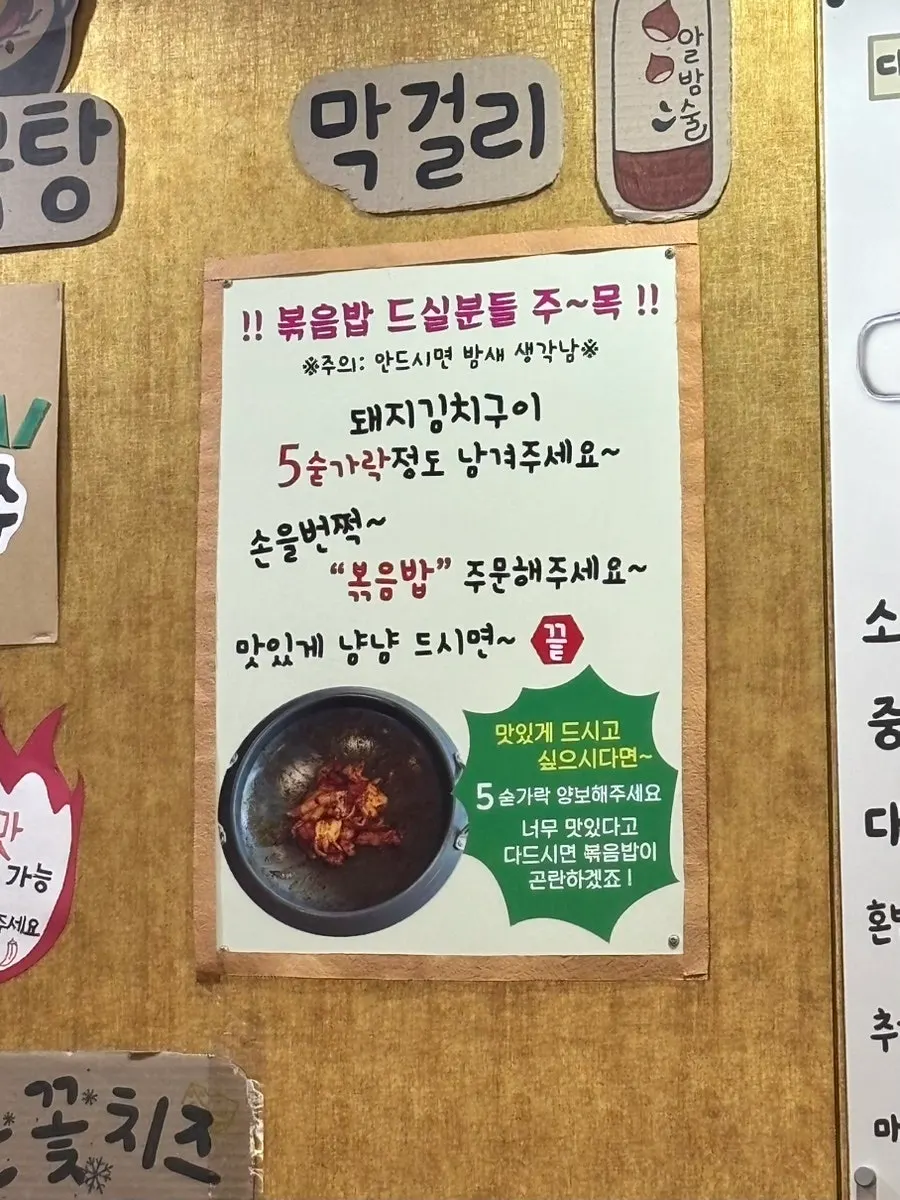 탕
막걸리
알밤술
!! 볶음밥 드실분들 주~목 !!
※주의: 안드시면 밤새 생각남※
돼지김치구이
5숟가락정도 남겨주세요~
손을번쩍~
“볶음밥” 주문해주세요~
맛있게 냥냥 드시면~ 끝
맛있게 드시고
싶으시다면~
5숟가락 양보해주세요
너무 맛있다고
다드시면 볶음밥이
곤란하겠죠!
맛
가능
주세요
꽃치즈
소
중
대